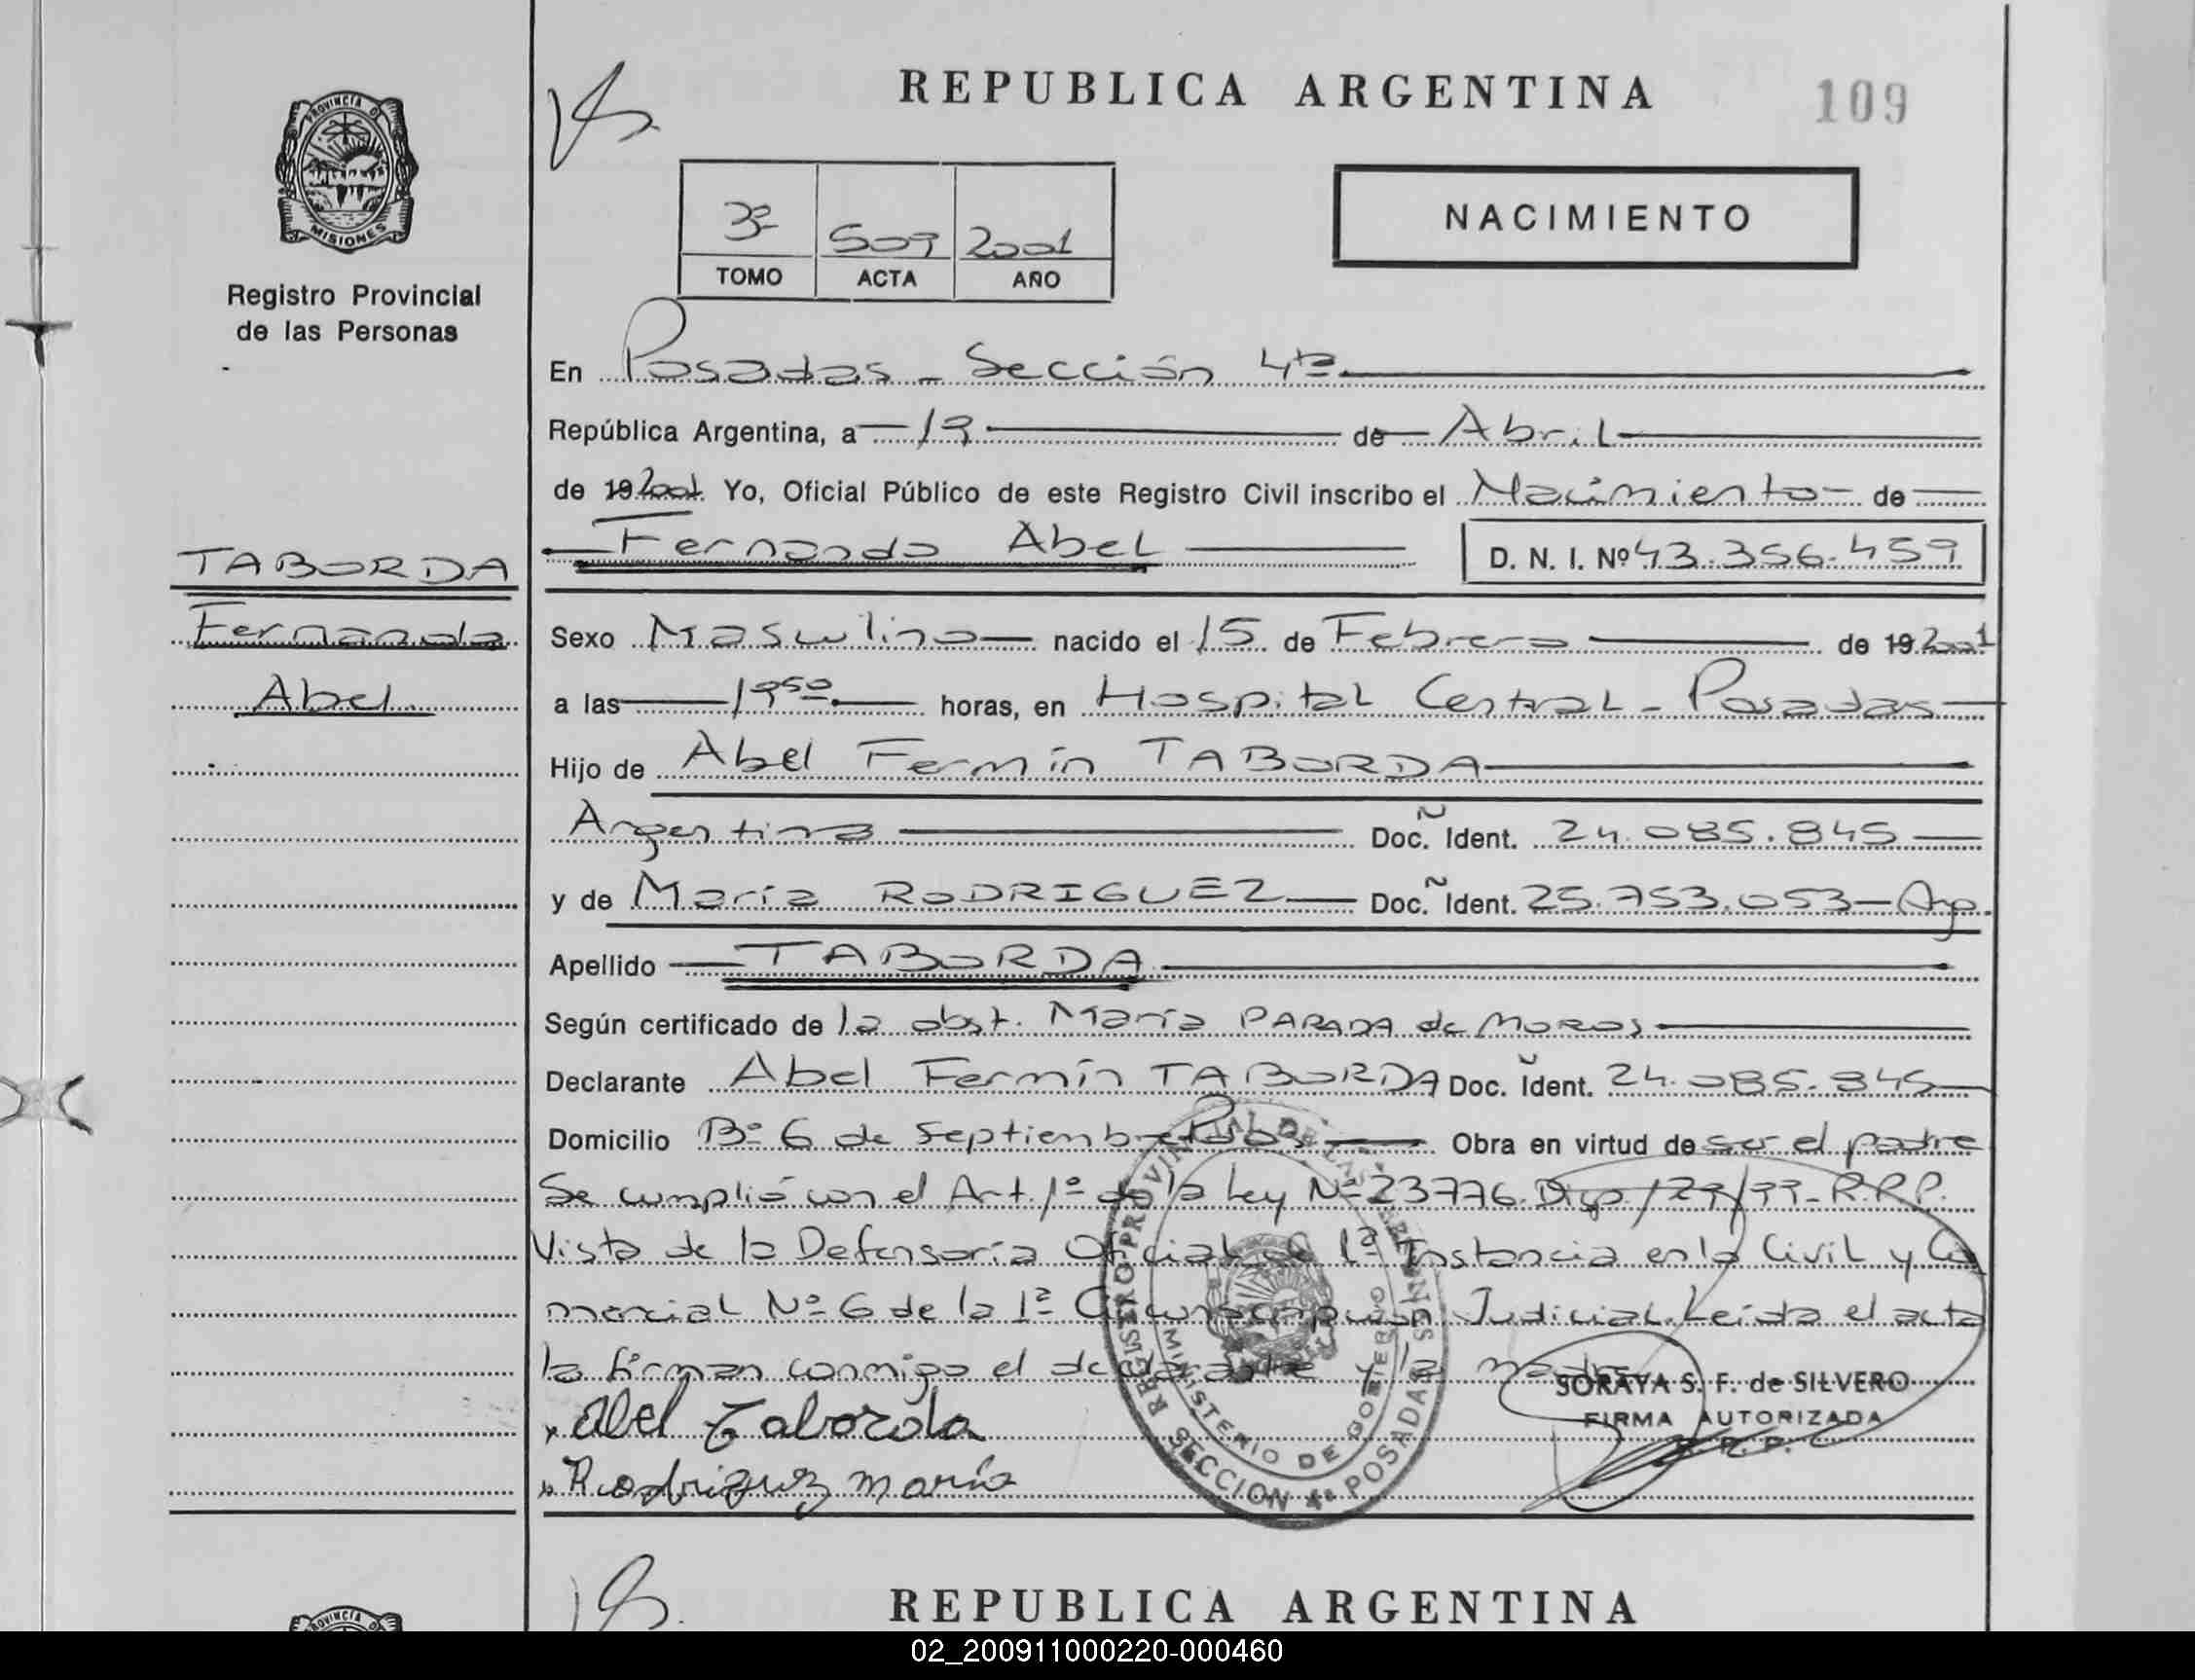 REPUBLICA ARGENTINA
109
PROVINCIA D
MISIONES
Registro Provincial
de las Personas
3º 509 2001
TOMO ACTA AÑO
NACIMIENTO
En Posadas - Sección 4ta
República Argentina, a 19 de Abril
de 19 2001. Yo, Oficial Público de este Registro Civil inscribo el Nacimiento de
Fernando Abel D. N. I. Nº 43.356.459
TABORDA
Fernando
Abel.
Sexo Masculino nacido el 15 de Febrero de 19 2001
a las 19⁵⁰ horas, en Hospital Central - Posadas
Hijo de Abel Fermín TABORDA
Argentina Doc. Ident. 24.085.845
y de María RODRIGUEZ Doc. Ident. 25.753.053 - Arg.
Apellido TABORDA
Según certificado de la obst. María PARADA de MOROS
Declarante Abel Fermín TABORDA Doc. Ident. 24.085.845
Domicilio Bº 6 de Septiembre Pdas Obra en virtud de ser el padre
Se cumplió con el Art. 1º de la Ley Nº 23776. Disp. /29/99 - R.P.P.
Vista de la Defensoría Oficial de 1ª Instancia en lo Civil y Co
mercial Nº 6 de la 1ª Circunscripción Judicial. Leída el acta
la firman conmigo el declarante y la madre
Abel Taborda
Rodriguez maria
REGISTRO PROVINCIAL DE LAS PERSONAS
MINISTERIO DE GOBIERNO
SECCION 4ª POSADAS
SORAYA S. F. de SILVERO
FIRMA AUTORIZADA
R. P. P.
REPUBLICA ARGENTINA
PROVINCIA
02_200911000220-000460